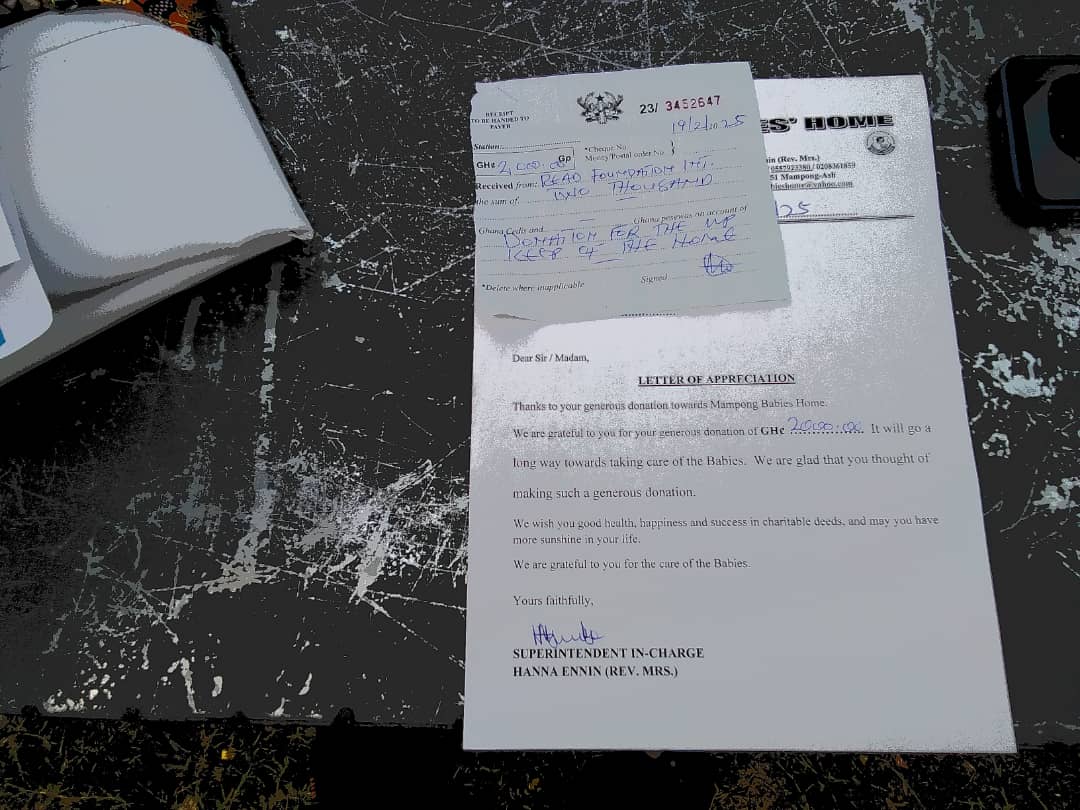 RECEIPT
TO BE HANDED TO
PAYER
23/ 3452647
19/2/2025
Station
GH¢ 2,000.00 Gp
*Cheque No.
Money/Postal order No.
Received from: READ FOUNDATION INT.
the sum of. TWO THOUSAND
Ghana Cedis and — Ghana pesewas on account of
DONATION FOR THE UP
KEEP OF THE HOME
Signed
*Delete where inapplicable
ES' HOME
nin (Rev. Mrs.)
0557923380 / 0208361859
51 Mampong-Ash
bieshome@yahoo.com
/25
Dear Sir / Madam,
LETTER OF APPRECIATION
Thanks to your generous donation towards Mampong Babies Home.
We are grateful to you for your generous donation of GH¢ 2,000.00. It will go a
long way towards taking care of the Babies. We are glad that you thought of
making such a generous donation.
We wish you good health, happiness and success in charitable deeds, and may you have
more sunshine in your life.
We are grateful to you for the care of the Babies.
Yours faithfully,
SUPERINTENDENT IN-CHARGE
HANNA ENNIN (REV. MRS.)